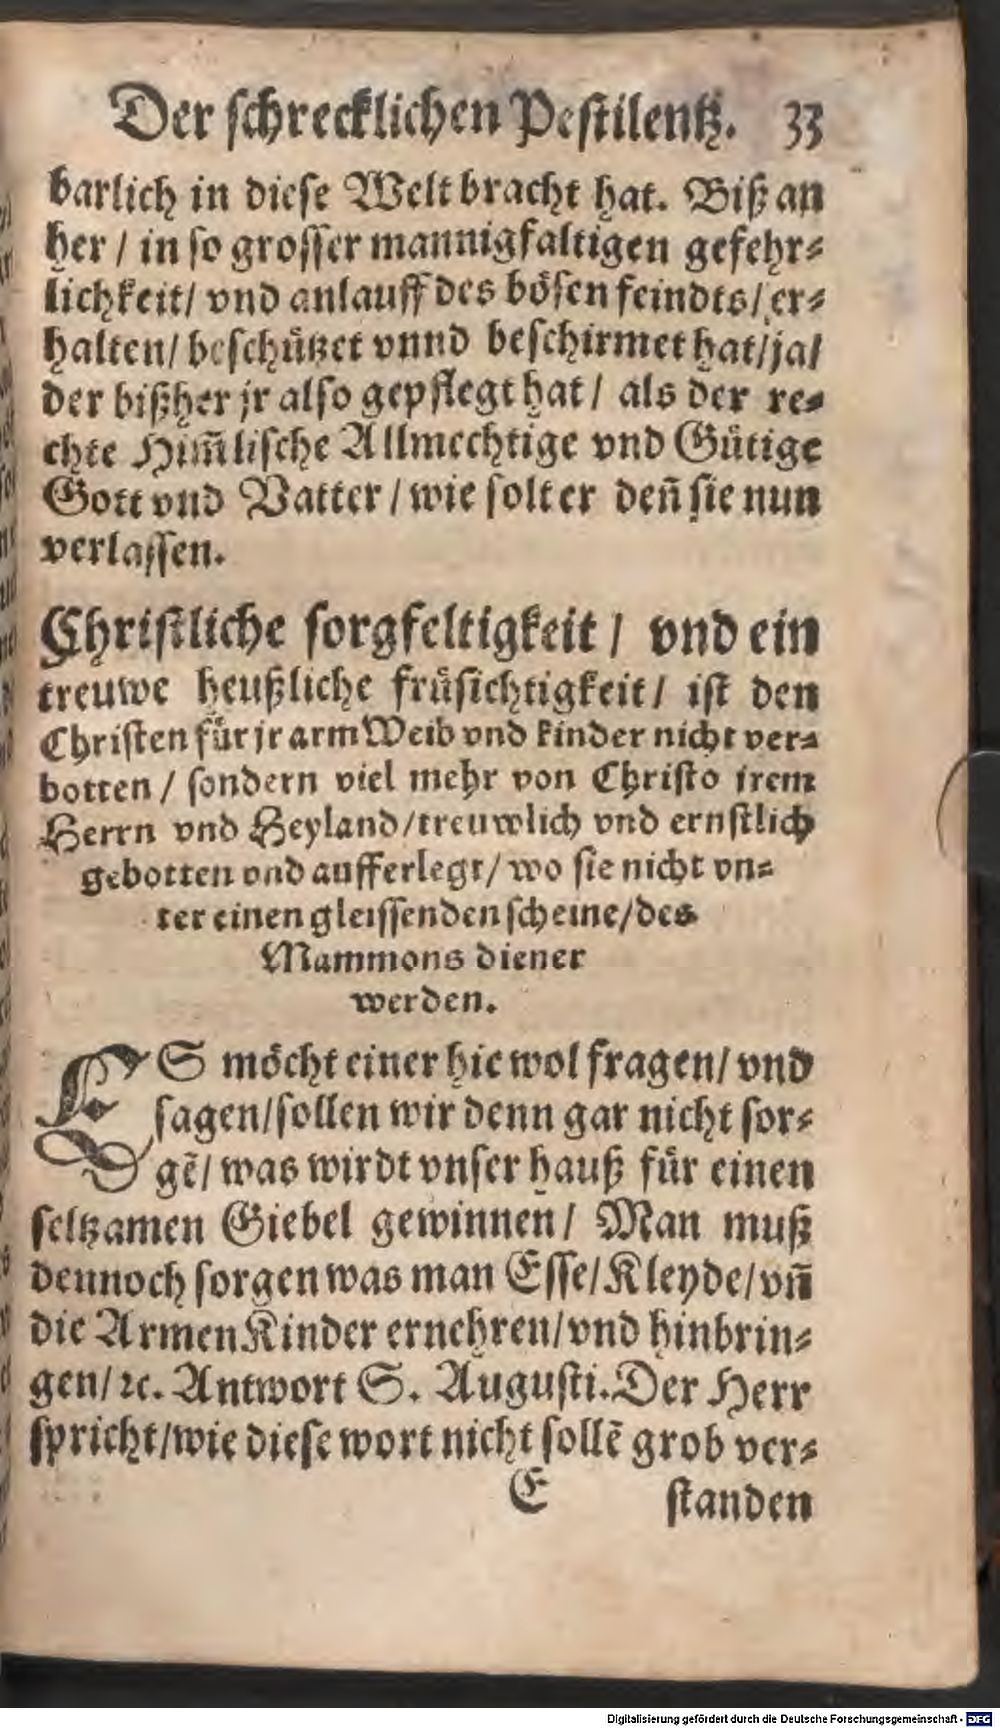 Der ſchrecklichen Peſtilentz. 33
barlich in dieſe Welt bracht hat. Biß an
her / in ſo groſſer mannigfaltigen gefehr⸗
lichkeit/ vnd anlauff des böſen feindts/ er⸗
halten/ beſchützet vnnd beſchirmet hat/ja/
der bißher jr alſo gepflegt hat / als der re⸗
chte Him̃liſche Allmechtige vnd Gütige
Gott vnd Vatter / wie ſolt er deñ ſie nun
verlaſſen.
Chriſtliche ſorgfeltigkeit / vnd ein
treuwe heußliche früſichtigkeit/ iſt den
Chriſten für jr arm Weib vnd kinder nicht ver⸗
botten / ſondern viel mehr von Chriſto jrem
Herrn vnd Heyland/treuwlich vnd ernſtlich
gebotten vnd aufferlegt/ wo ſie nicht vn⸗
ter einen gleiſſenden ſcheine/des
Mammons diener
werden.
ES möcht einer hie wol fragen/ vnd
ſagen/ſollen wir denn gar nicht ſor⸗
gẽ/ was wirdt vnſer hauß für einen
ſeltzamen Giebel gewinnen/ Man muß
dennoch ſorgen was man Eſſe/Kleyde/vñ
die Armen Kinder ernehren/vnd hinbrin⸗
gen/ ꝛc. Antwort S. Auguſti. Der Herr
ſpricht/wie dieſe wort nicht ſollẽ grob ver⸗
E ſtanden
Digitalisierung gefördert durch die Deutsche Forschungsgemeinschaft - DFG